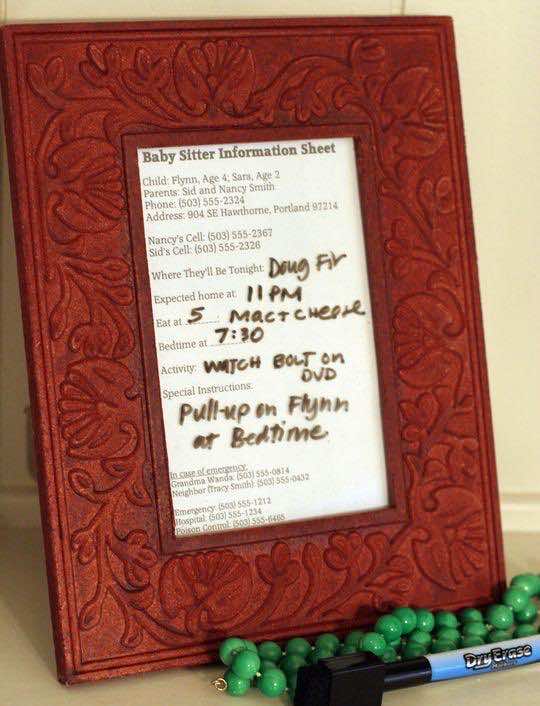 Baby Sitter Information Sheet
Child: Flynn, Age 4; Sara, Age 2
Parents: Sid and Nancy Smith
Phone: (503) 555-2324
Address: 904 SE Hawthorne, Portland 97214
Nancy's Cell: (503) 555-2367
Sid's Cell: (503) 555-2328
Where They'll Be Tonight: Doug Fir
Expected home at: 11 PM
Eat at 5 : Mac + Cheese
Bedtime at 7:30
Activity: WATCH BOLT on
DVD
Special Instructions:
Pull-up on Flynn
at Bedtime
In case of emergency:
Grandma Wanda: (503) 555-0814
Neighbor (Tracy Smith): (503) 555-0432
Emergency: (503) 555-1212
Hospital: (503) 555-1234
Poison Control: (503) 555-6465
Dry Erase
Markers